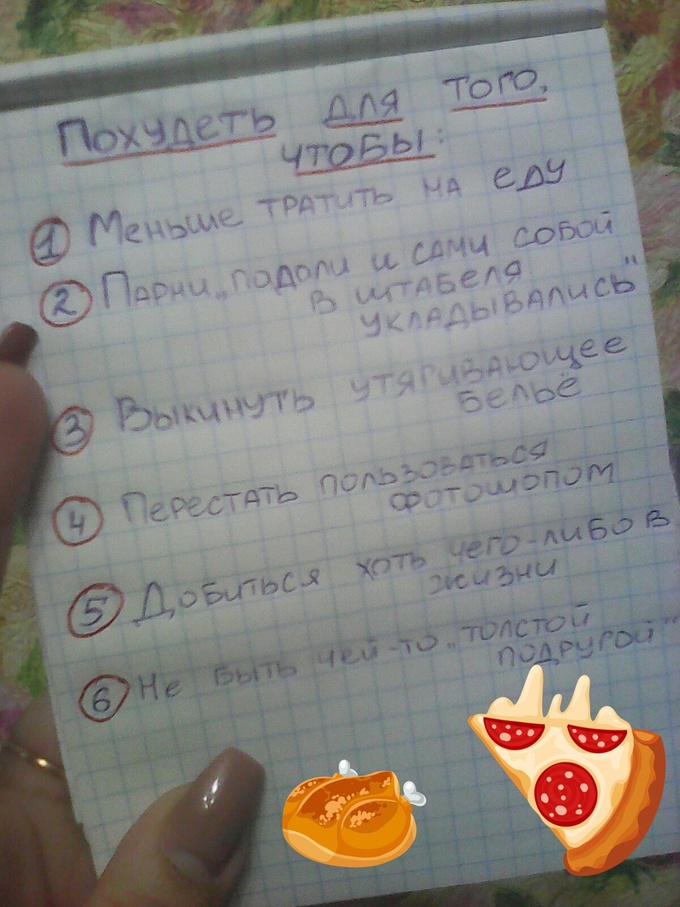 Похудеть для того,
чтобы:
1 Меньше тратить на еду
2 Парни „падали и сами собой
в штабеля
укладывались"
3 Выкинуть утягивающее
бельё
4 Перестать пользоваться
фотошопом
5 Добиться хоть чего-либо в
жизни
6 Не быть чей-то „толстой
подругой"